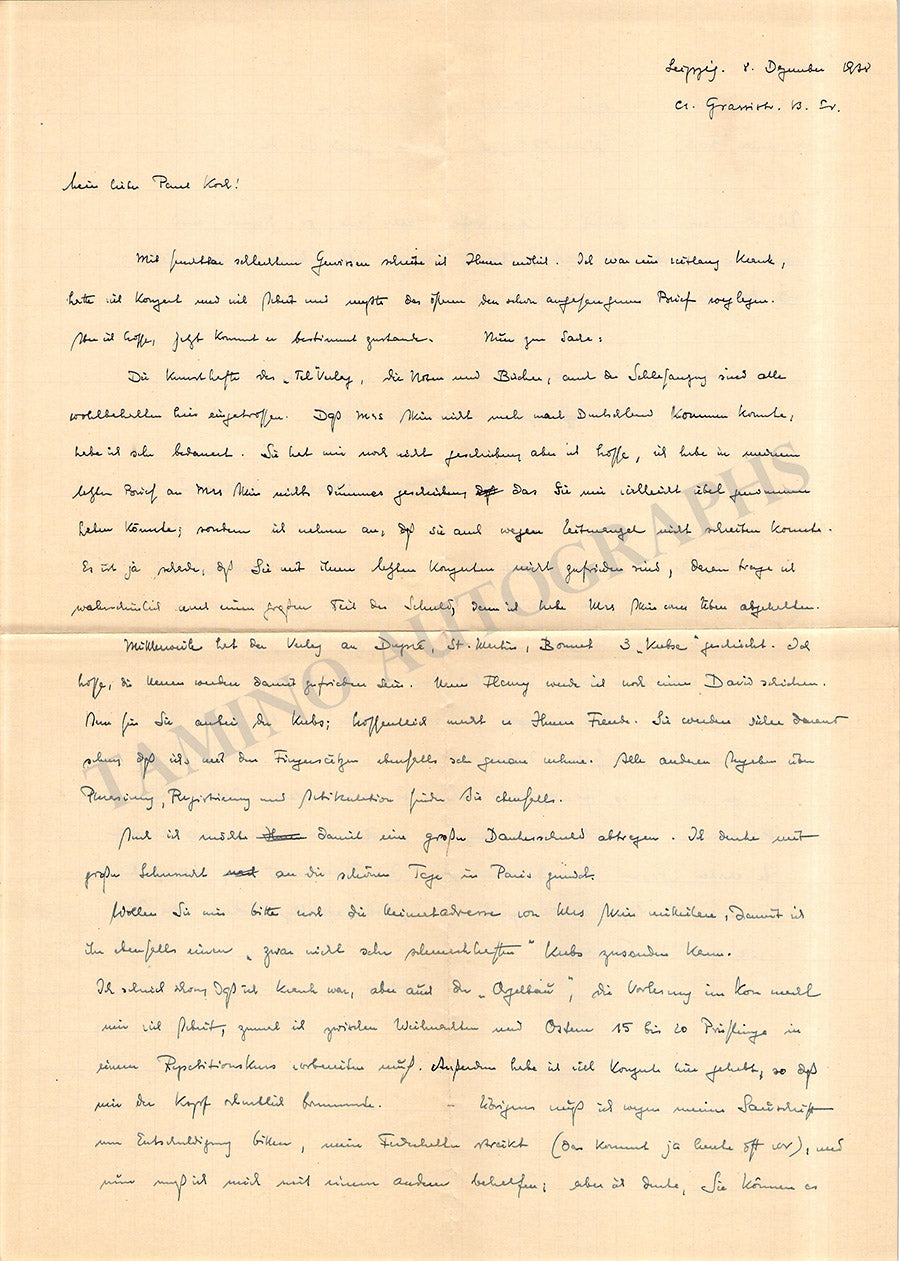 Leipzig. 8. Dezember 1938
C1. Grassistr. 13. Tr.
Mein lieber Paul Koch!
Mit furchtbar schlechtem Gewissen schreibe ich Ihnen endlich. Ich war eine zeitlang krank,
hatte viel Konzert und viel Arbeit und mußte des öfteren den schon angefangenen Brief weglegen.
Aber ich hoffe, jetzt kommt er bestimmt zustande. Nun zur Sache:
Die Kunsthefte des „Tel" Verlag, die Noten und Bücher, auch der Schlafanzug sind alle
wohlbehalten hier eingetroffen. Daß Mrs Main nicht mehr nach Deutschland kommen konnte,
habe ich sehr bedauert. Sie hat mir noch nicht geschrieben, aber ich hoffe, ich habe in meinem
letzten Brief an Mrs Main nichts dummes geschrieben, das Sie mir vielleicht übel genommen
haben könnte; sondern ich nehme an, daß sie auch wegen Zeitmangel nicht schreiben konnte.
Es ist ja schade, daß Sie mit ihren letzten Konzerten nicht zufrieden sind, daran trage ich
wahrscheinlich auch einen großen Teil der Schuld, denn ich habe Mrs Main vom Üben abgehalten.
Mittlerweile hat der Verlag an Dupré, St. Martin, Bonnet 3 „Krebse" geschickt. Ich
hoffe, die Herren werden damit zufrieden sein. Herrn Fleury werde ich noch einen David schicken.
Nun für Sie anbei der Krebs; hoffentlich macht er Ihnen Freude. Sie werden sicher daraus
sehen, daß ichs mit den Fingersätzen ebenfalls sehr genau nehme. Alle anderen Angaben über
Phrasierung, Registrierung und Artikulation finden Sie ebenfalls.
Auch ich möchte damit eine große Dankesschuld abtragen. Ich denke mit
großer Sehnsucht an die schönen Tage in Paris zurück.
Wollen Sie mir bitte noch die Heimatadresse von Mrs Main mitteilen, damit ich
ihr ebenfalls einen „zwar nicht sehr schmackhaften" Krebs zusenden kann.
Ich schrieb schon, daß ich krank war, aber auch der „Orgelbau", die Vorlesung im Kon macht
mir viel Arbeit, zumal ich zwischen Weihnachten und Ostern 15 bis 20 Prüflinge in
einem Repetitionskurs vorbereiten muß. Außerdem habe ich viel Konzerte hier gehabt, so daß
mir der Kopf ordentlich brummte. – Übrigens muß ich wegen meiner Sauschrift
um Entschuldigung bitten, mein Federhalter streikt (das kommt ja heute oft vor), und
nun muß ich mich mit einem andern behelfen; aber ich denke, Sie können es
TAMINO AUTOGRAPHS